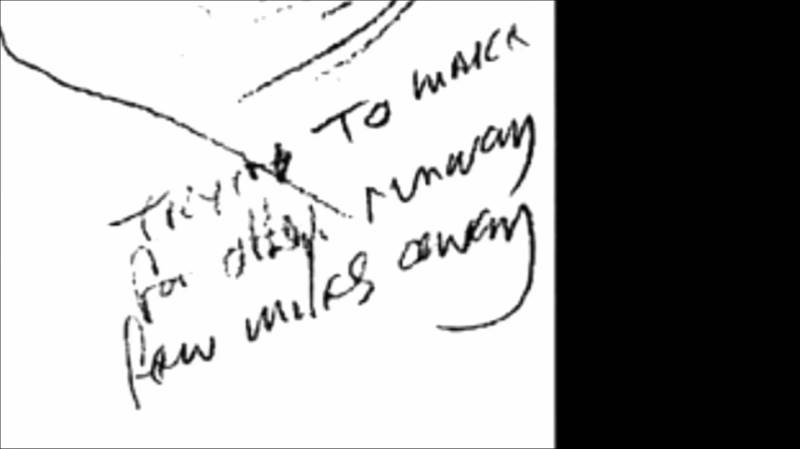 Trying TO MAKE
for other runway
few miles away